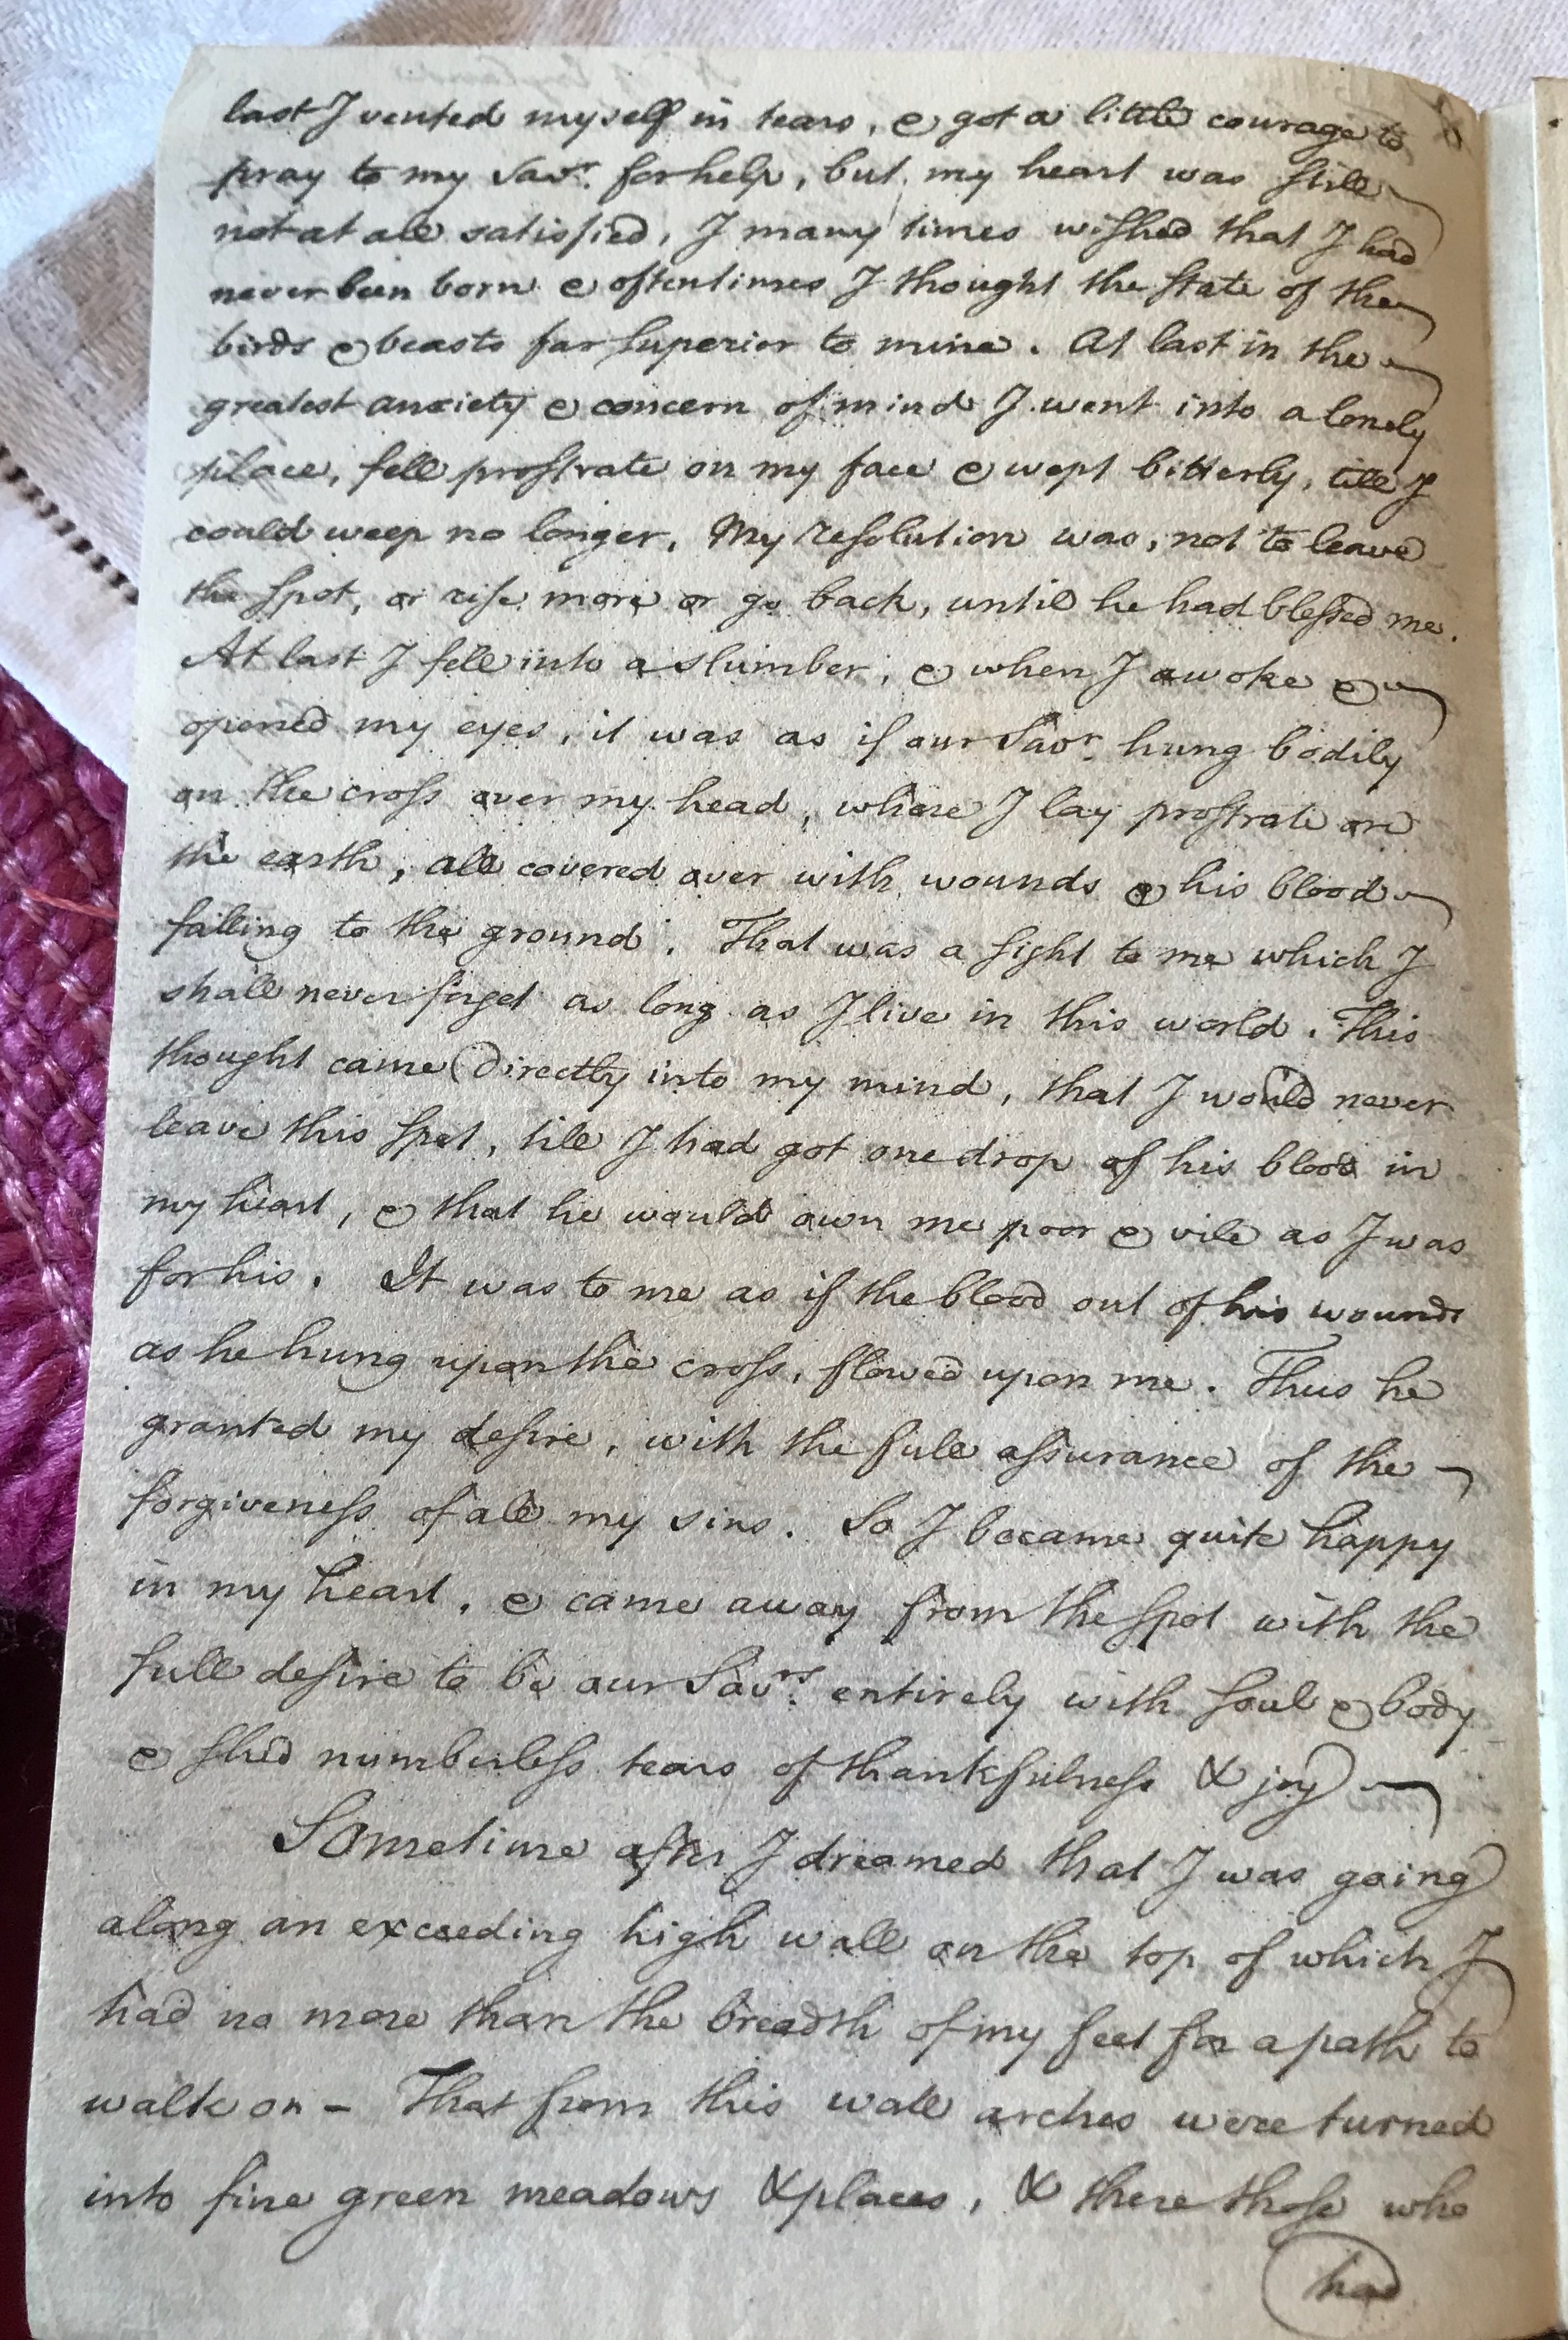 last I vented myself in tears, & got a little courage to
pray to my Savr. for help, but my heart was still
not at all satisfied, I many times wished that I had
never been born & oftentimes I thought the state of the
birds & beasts far superior to mine. At last in the
greatest anxiety & concern of mind I went into a lonely
place, fell prostrate on my face & wept bitterly, till I
could weep no longer. My resolution was, not to leave
the spot, or rise more or go back, until he had blessed me.
At last I fell into a slumber, & when I awoke &
opened my eyes, it was as if our Savr. hung bodily
on the cross over my head, where I lay prostrate on
the earth, all covered over with wounds & his blood
falling to the ground. That was a sight to me which I
shall never forget as long as I live in this world. This
thought came directly into my mind, that I would never
leave this spot, till I had got one drop of his blood in
my heart, & that he would own me poor & vile as I was
for his. It was to me as if the blood out of his wounds
as he hung upon the cross, flowed upon me. Thus he
granted my desire, with the full assurance of the
forgiveness of all my sins. So I became quite happy
in my heart, & came away from the spot with the
full desire to be our Savrs. entirely with soul & body
& shed numberless tears of thankfulness & joy
Sometime after I dreamed that I was going
along an exceeding high wall on the top of which I
had no more than the breadth of my feet for a path to
walk on - That from this wall arches were turned
into fine green meadows & places, & there those who
had